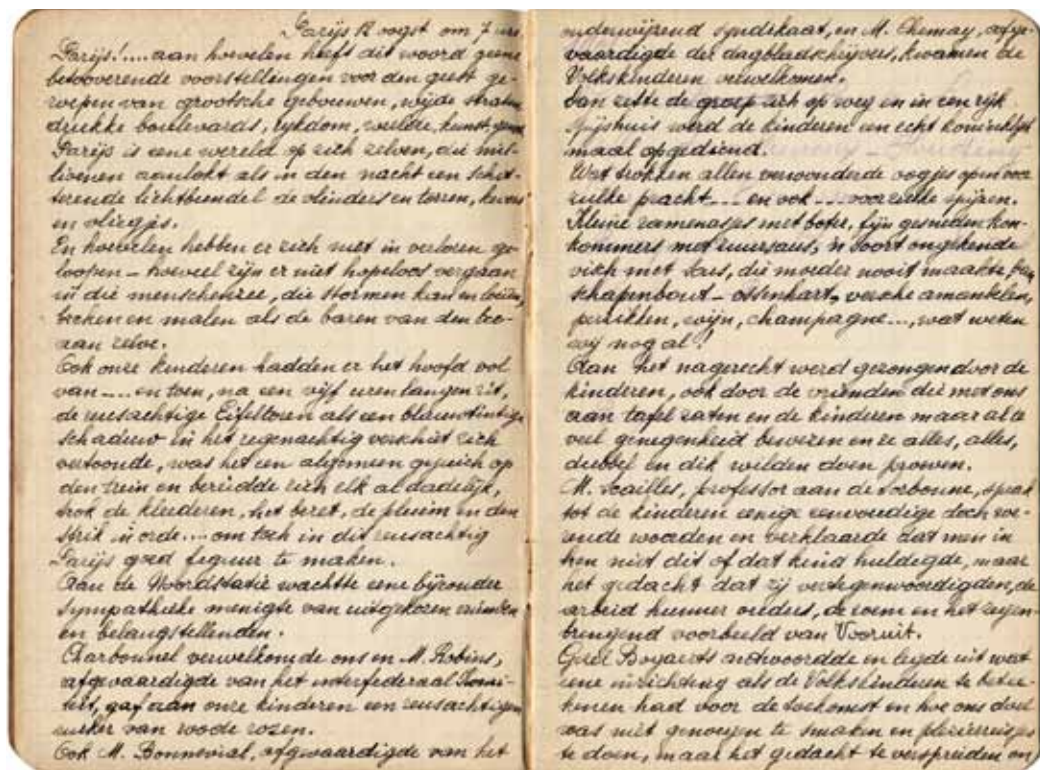 Parijs 12 oogst om 7 ure.
Parijs!.... aan hoevelen heeft dit woord geene
betooverende voorstellingen voor den geest ge-
roepen van grootsche gebouwen, wijde straten
drukke boulevards, rykdom, weelde, kunst,
Parijs is eene wereld op zich zelven, die mil-
lioenen aanlokt als in den nacht een schit-
terende lichtbundel de vlinders en torren,
en vliegjes.
En hoevelen hebben er zich niet in verloren ge-
loopen - hoeveel zijn er niet hopeloos vergaan
in die menschenzee, die stormen kan en
beuken en malen als de baren van den oce-
aan zelve.
Ook onze kinderen hadden er het hoofd vol
van .... en toen, na een vijf uren langen rit,
de reusachtige Eifeltoren als een blauwtintige
schaduw in het regenachtig verschiet zich
vertoonde, was het een algemeen gejuich op
den trein en bereidde zich elk al dadelijk,
trok de kleederen, het beret, de pluim en den
strik in orde.... om toch in dit reusachtig
Parijs goed figuur te maken.
Aan de Noordstatie wachtte eene bijzonder
sympathieke menigte van uitgekozen vrienden
en belangstellenden.
Charbonnel verwelkomde ons en M. Robins,
afgevaardigde van het interfederaal Komi-
teit, gaf aan onze kinderen een reusachtigen
ruiker van roode rozen.
Ook M. Bonnevial, afgevaardigde van het
onderwijzend syndikaat, en M. Chemay, afge-
vaardigde der dagbladschrijvers, kwamen de
Volkskinderen verwelkomen.
Dan zette de groep zich op weg en in een rijk
spijshuis werd de kinderen een echt koninklijk
maal opgediend.
Wat trokken allen verwonderde oogjes open voor
zulke pracht.... en ook.... voor zulke spijzen.
Kleine ramenasjes met boter, fijn gesneden kon-
kommers met zuursaus, 'n soort ongekende
visch met saus, die moeder nooit maakte,
schapenbout - ossenhart, versche amandelen,
perzikken, wijn, champagne..., wat weten
wij nog al!
Aan het nagerecht werd gezongen door de
kinderen, ook door de vrienden die met ons
aan tafel zaten en de kinderen maar al te
veel genegenheid bewezen en ze alles, alles,
dubbel en dik wilden doen proeven.
M. Seailles, professor aan de Sorbonne, sprak
tot de kinderen eenige eenvoudige doch roe-
rende woorden en verklaarde dat men in
hen niet dit of dat kind huldigde, maar
het gedacht dat zij vertegenwoordigden, de
arbeid hunner ouders, de roem en het zegen-
brengend voorbeeld van Vooruit.
Gust Bogaerts antwoordde en legde uit wat
eene inrichting als de Volkskinderen te betee-
kenen had voor de toekomst en hoe ons doel
was niet genoegen te smaken en plezierreisjes
te doen, maar het gedacht te verspreiden on